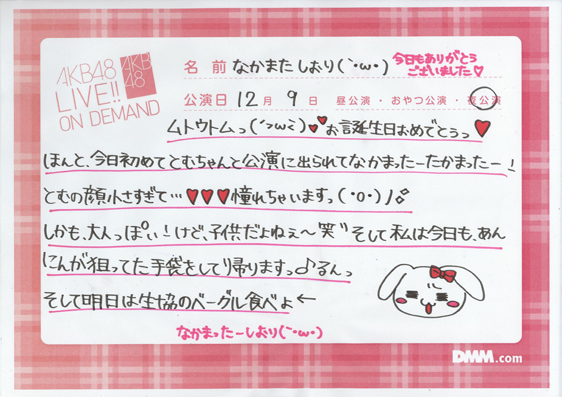 AKB48
LIVE!!
ON DEMAND
AKB
48
名前 なかまたしおり(`・ω・)
今日もありがとう
ございました♡
公演日 12月 9日 昼公演・おやつ公演・夜公演
ムトウトムっ(´つω⊂) お誕生日おめでとうっ♥
ほんと、今日初めてとむちゃんと公演に出られてなかまったーたかまったー!
とむの顔小さすぎて…♥♥♥憧れちゃいますっ(・0・)ノ
しかも、大人っぽぃぃ!けど、子供だよねぇ〜笑" そして私は今日も、あん
にんが狙ってた手袋をして帰りますっ♪るんっ
そして明日は生協のベーグル食べょ←
なかまったーしおり(`・ω・)
DMM.com